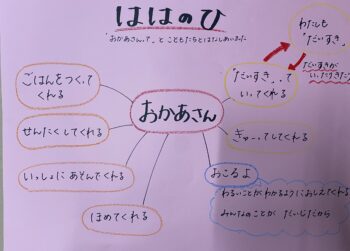 ははのひ
"おかあさん、て" と こどもたちとはなしあいました
わたしも
"だいすき"
だいすきが
ごはんをつくって
くれる
"だいすき"、って
いってくれる
おかあさん
せんたくしてくれる
ぎゅーってしてくれる
いっしょに あそんでくれる
おこるよ
わるいことが わかるように おしえてくれる
みんなのことが だいじだから
ほめてくれる